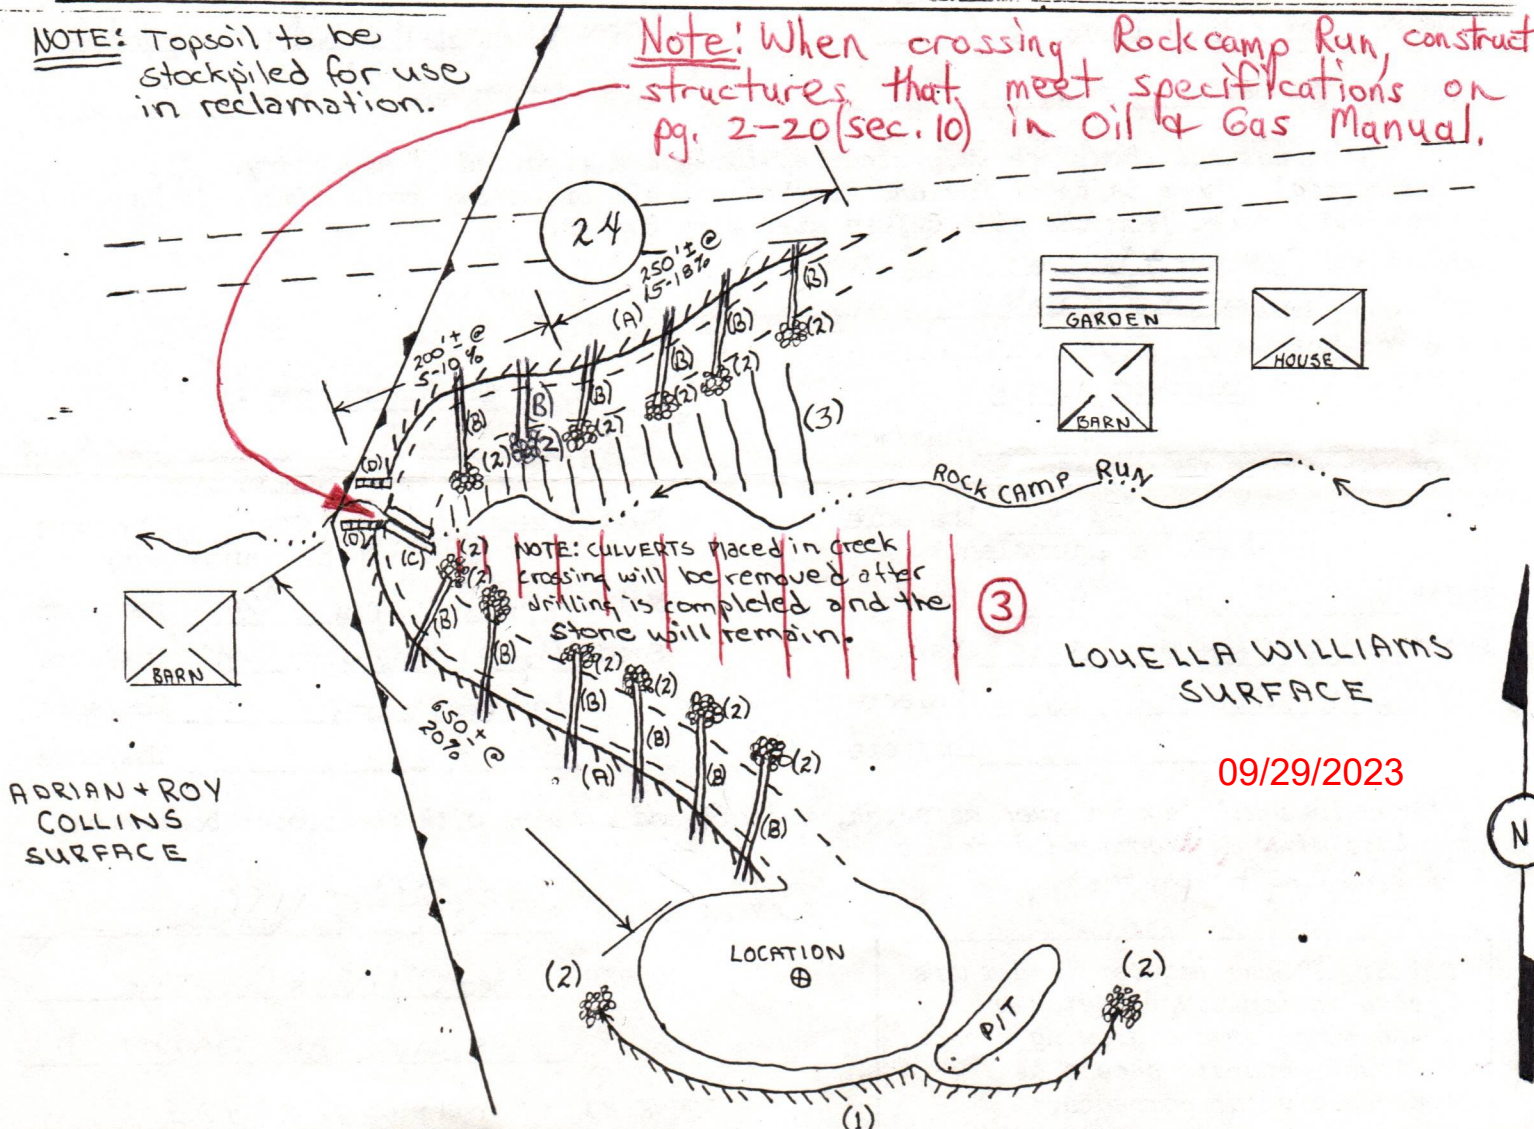 NOTE: Topsoil to be
stockpiled for use
in reclamation.
Note: When crossing Rockcamp Run, construct
structures that meet specifications on
pg. 2-20 (sec. 10) in Oil & Gas Manual.
24
250'± @
15-18%
200'± @
5-10%
(A)
(B)
(B)
(B)
(B)
(B)
(B)
(2)
(2)
(2)
(2)
(2)
(2)
(3)
GARDEN
HOUSE
BARN
ROCK CAMP RUN
(D)
(D)
(C)
(2)
(2)
NOTE: CULVERTS placed in creek
crossing will be removed after
drilling is completed and the
stone will remain.
3
BARN
(B)
(B)
(2)
(B)
(2)
(B)
(2)
(B)
(2)
(B)
(A)
650'± @
20%
LOUELLA WILLIAMS
SURFACE
09/29/2023
ADRIAN + ROY
COLLINS
SURFACE
N
LOCATION
(2)
(2)
PIT
(1)